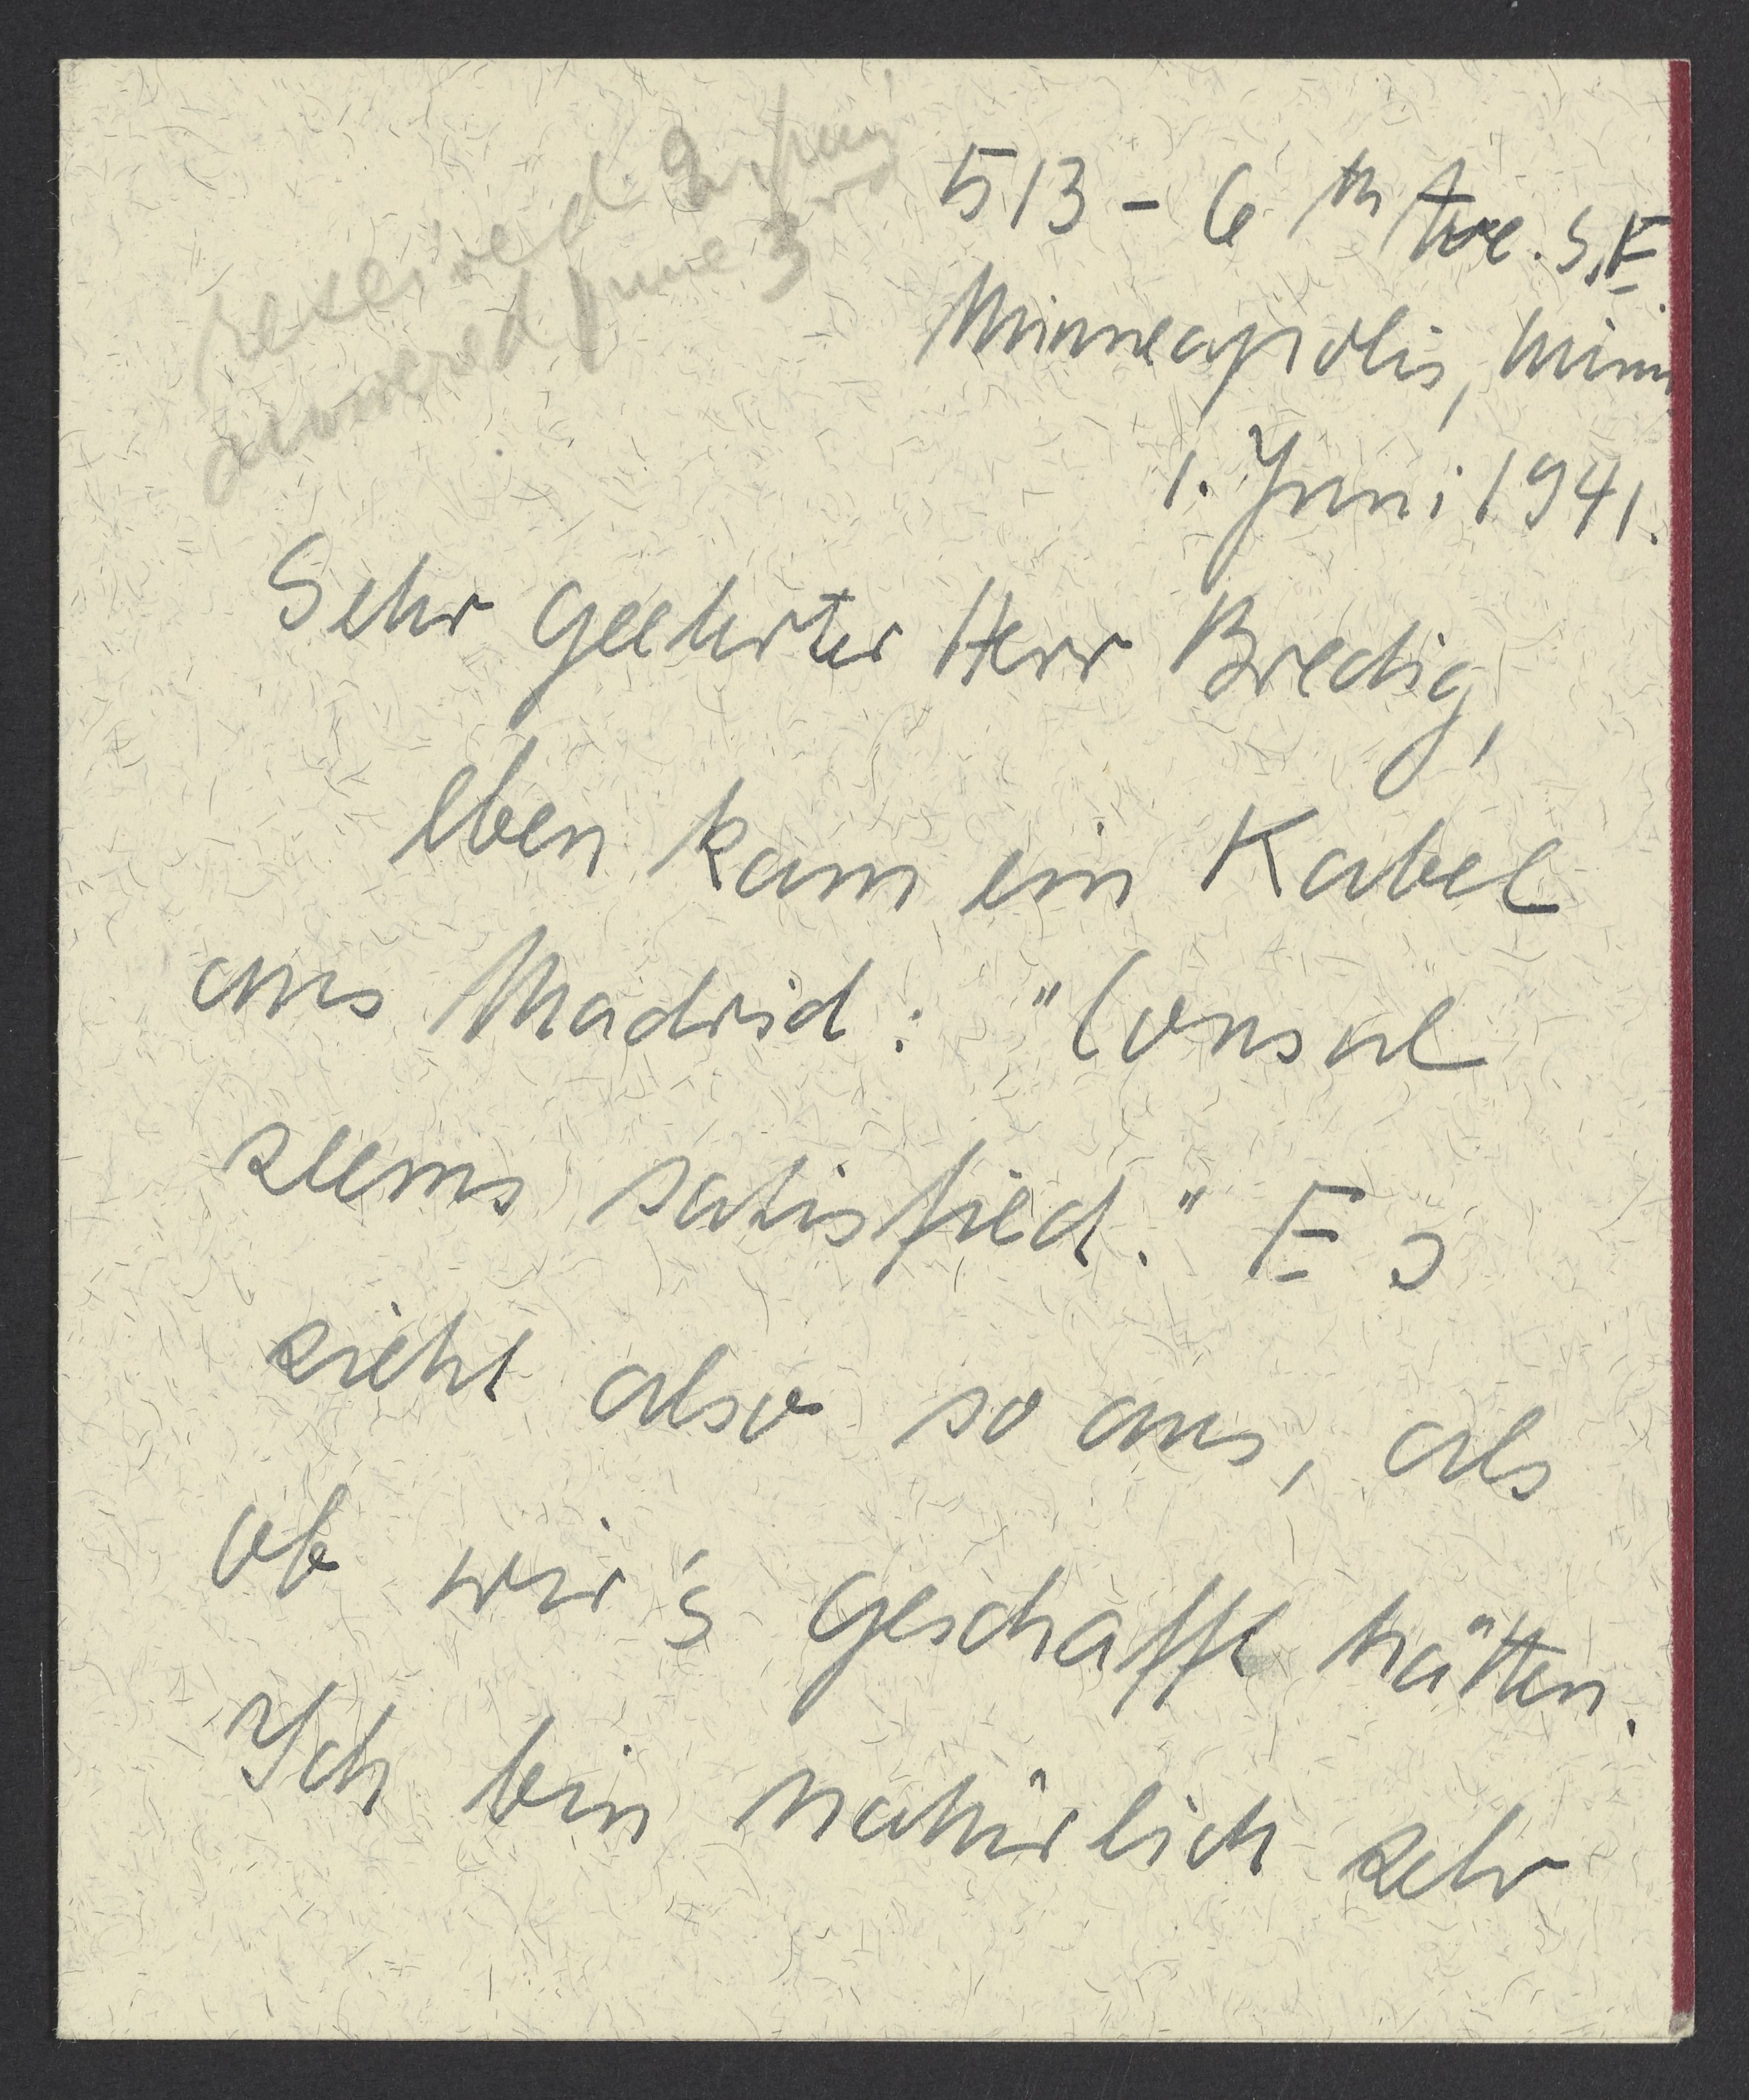 received 2. June
answered June 3rd
513 - 6th Ave. S.E.
Minneapolis, Minn.
1. Juni 1941.
Sehr geehrter Herr Bredig,
eben kam ein Kabel
aus Madrid: "Consul
seems satisfied." Es
sieht also so aus, als
ob wir's geschafft hätten.
Ich bin natürlich sehr